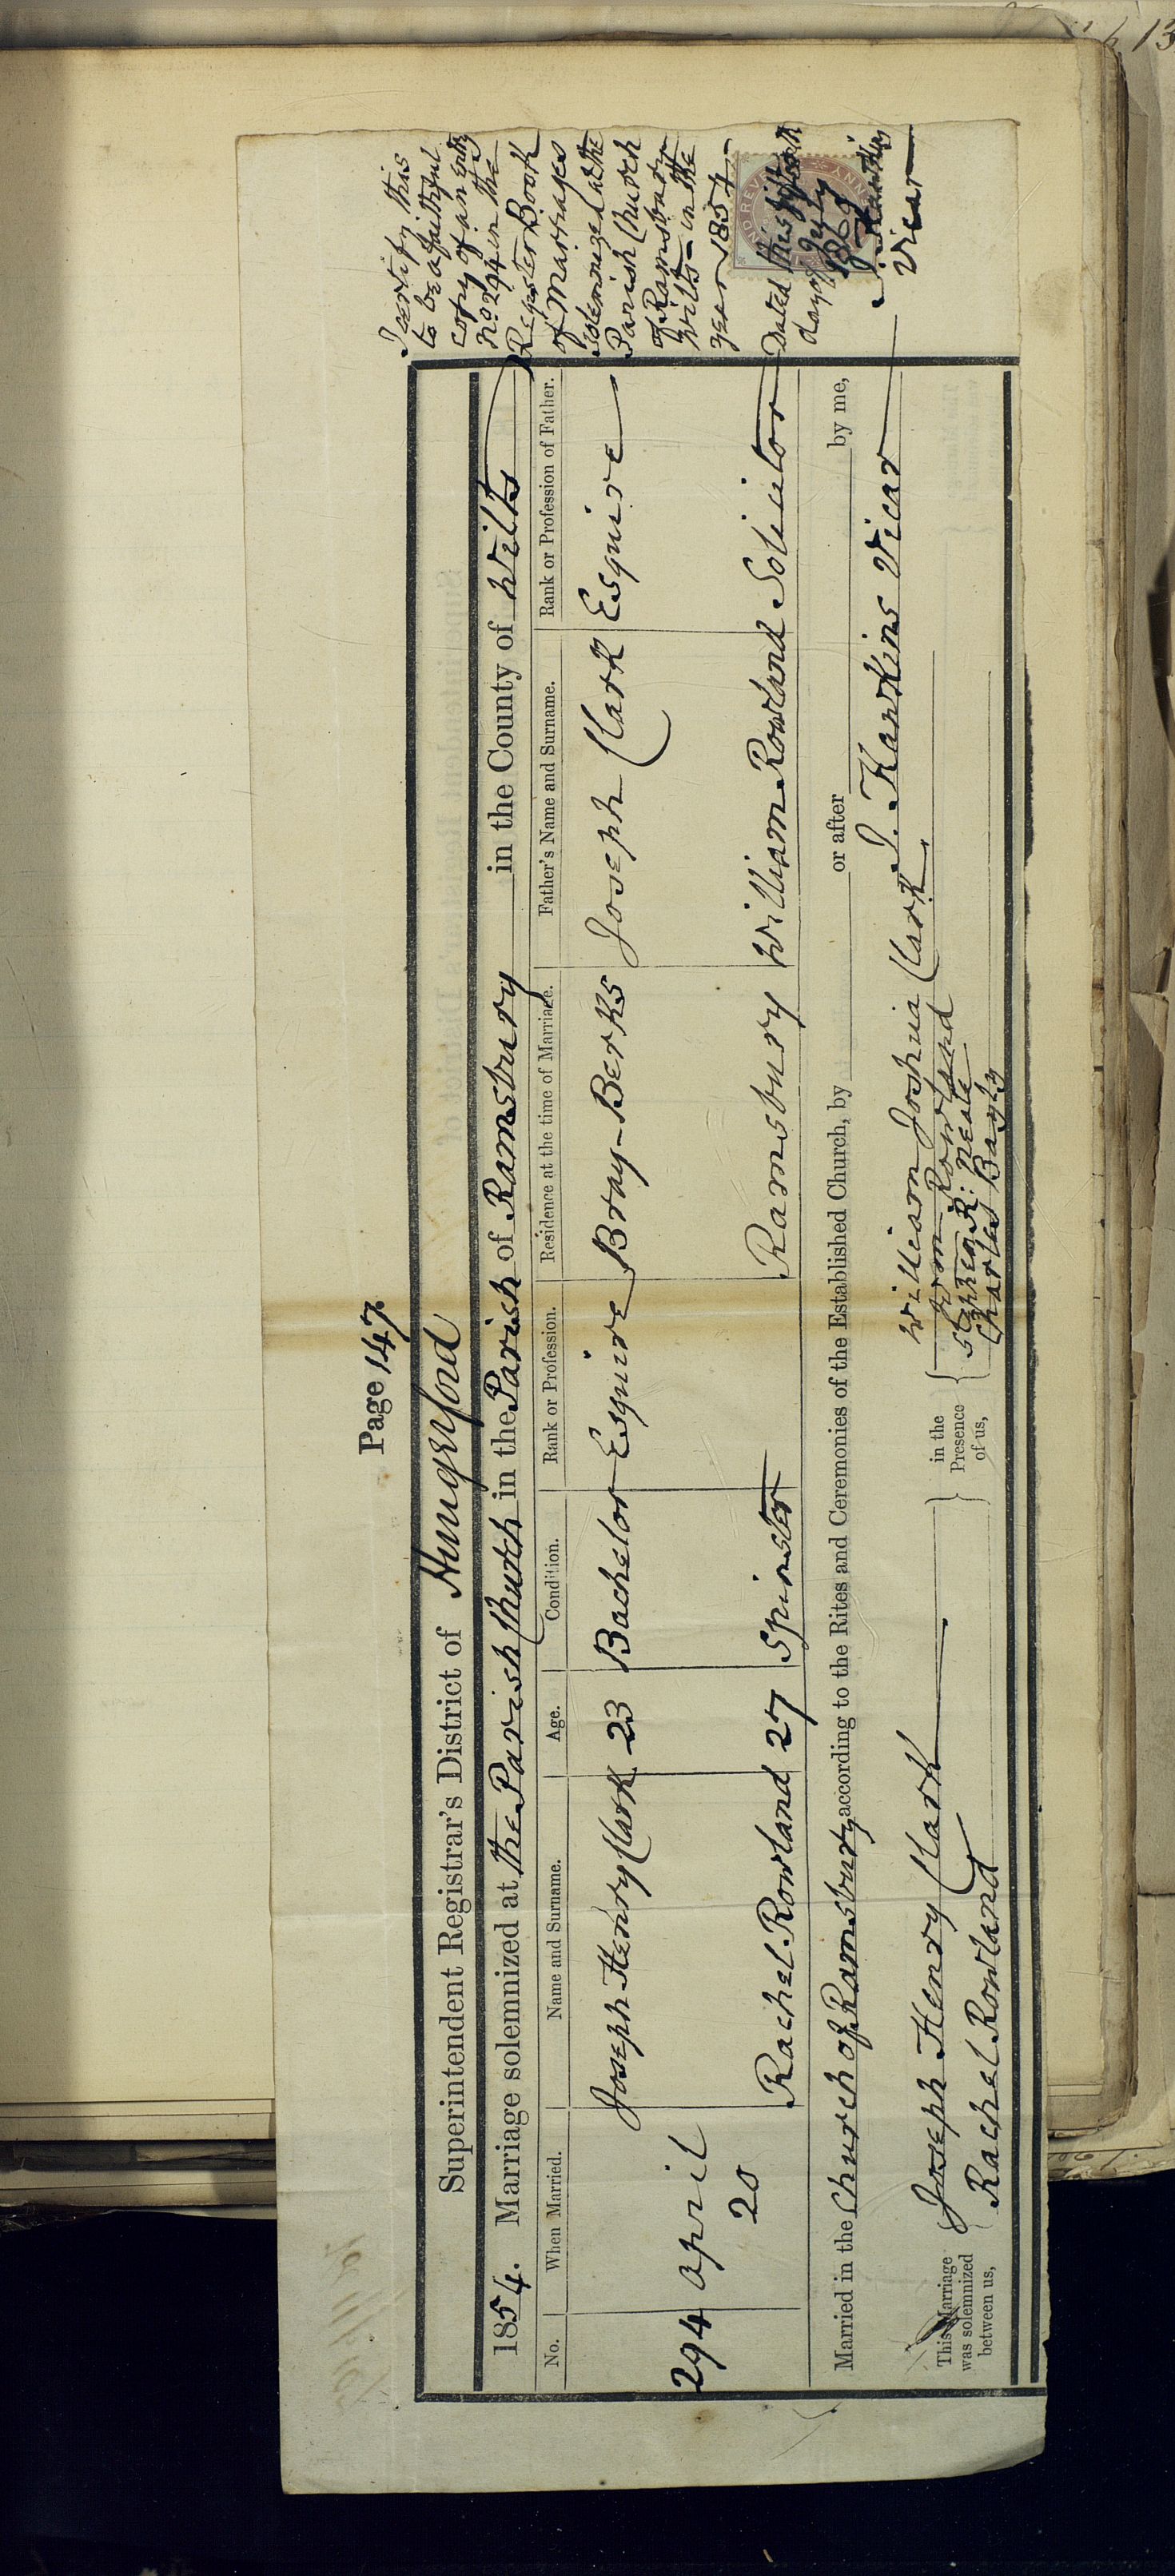 Page 147
Superintendent Registrar's District of Hungerford
1854. Marriage solemnized at the Parish Church in the Parish of Ramsbury in the County of Wilts
No. When Married. Name and Surname. Age. Condition. Rank or Profession. Residence at the time of Marriage. Father's Name and Surname. Rank or Profession of Father.
Joseph Henry Clark 23 Bachelor Esquire Bray-Berks Joseph Clark Esquire
294 April
20
Rachel Rowland 27 Spinster Ramsbury William Rowland Solicitor
Married in the Church of Ramsbury according to the Rites and Ceremonies of the Established Church, by or after by me,
J. Hawkins Vicar
This Marriage
was solemnized
between us,
Joseph Henry Clark
Rachel Rowland
in the
Presence
of us,
William Joshua Clark
Wm Rowland
Stephen R: Neate
Charles Bayly
I certify this
to be a faithful
copy of an entry
No 294 in the
Register Book
of Marriages
solemnized at the
Parish Church
of Ramsbury
Wilts - in the
year 1854.
Dated this
day of July
1869
J. Hawkins
Vicar